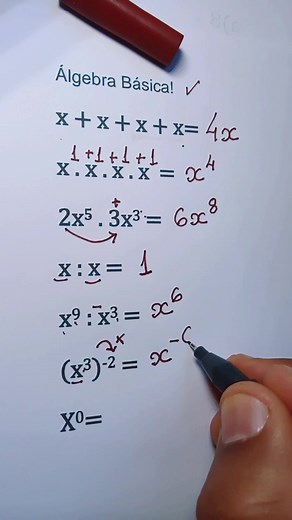 Álgebra Básica! ✓
x + x + x + x = 4x
1 + 1 + 1 + 1
x . x . x . x = x⁴
+
2x⁵ . 3x³ = 6x⁸
x : x = 1
x⁹ : x³ = x⁶
(x³)⁻² = x⁻
X⁰=